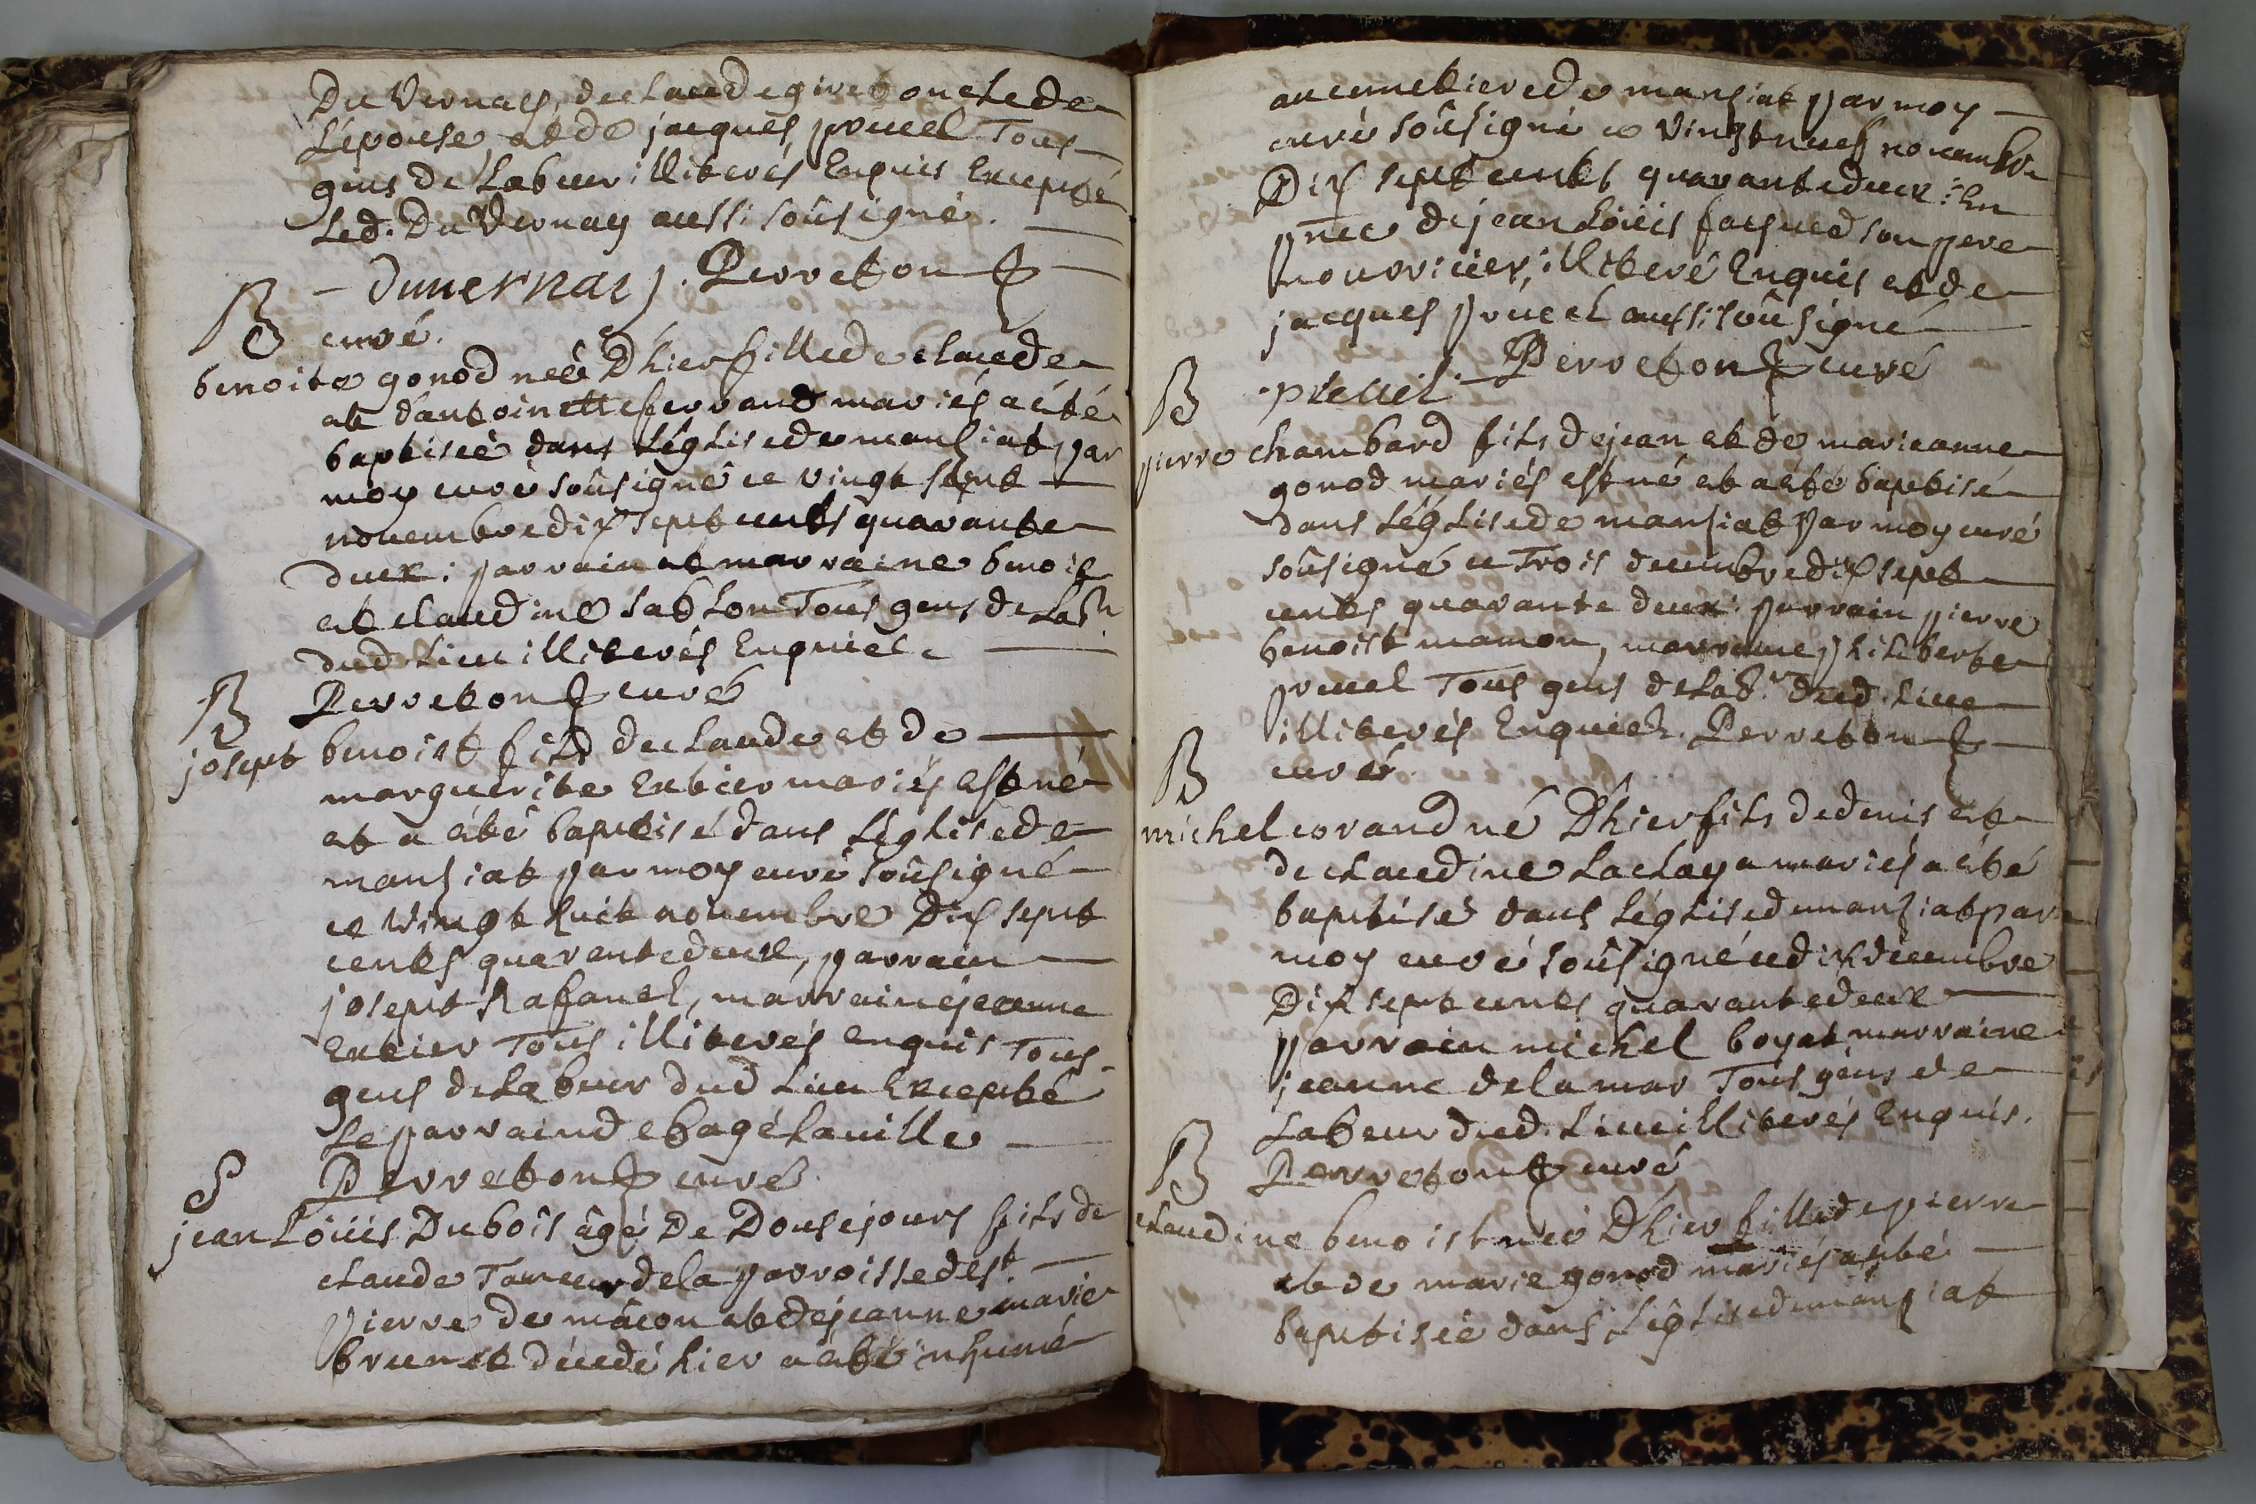 Du Vernay, de claude giret oncle de
L'épouse et de jacques pruel Tous
gens de Labeur illiterés Enquis Excepté
Led. Du Vernay aussi soûsigné.
duuernai). Perreton
B curé.
benoite gonod neé Dhier fille de claude
et d'antoinette ferrand mariés a été
baptiseé dans L'églisede manziat par
moy curé soûsigné ce vingt sept
nouembre dix sept cents quarante
deux: parrain et marraine benoit
et claudine sablon Tous gens de Labr
dud. Lieu illiterés Enquiel.
B Perreton curé
josept benoist fils de claude et de
marguerite Extier mariés est né
et a été baptisé dans L'églisede
manziat par moy curé soûsigné
ce vingt huit nouembre Dix sept
cents quarente deux, parrain
josept Rafanel, marraine jeanne
Extier Tous illiterés enquis Tous
gens de Labeur dud Lieu Excepté
Le parrain de bagé La uille
S Perreton curé
jean Loüis Dubois âgé De Douse jours fils de
claude Tanneur de la parroisse de st.
pierre de mâcon et de jeanne marie
brunet décédé hier a été inhumé
au cemetiere de manziat par moy
curé soûsigné ce vingt neuf nouembre
Dix sept cents quarante deux: En
pnce de jean Loüis facqued son pere
nourricier, illiteré Enquis et de
jacques pruel aussi soûsigné
B pruel. Perreton curé
pierre chambard fils de jean et de marieanne
gonod mariés est né et a été baptisé
dans L'églisede manziat par moy curé
soûsigné ce Trois decembre dix sept
cents quarante deux: parrain pierre
benoist mamon, marraine philiberte
pruel Tous gens de Labr. dud. Lieu
illiterés Enquiel. Perreton
B curé.
michel corand né Dhier fils de denis et
de claudine Laclaya mariés a été
baptisé dans L'églisede manziat par
moy curé soûsigné ce dix décembre
Dix sept cents quarante deux
parrain michel boyat marraine
jeanne de la mar Tous gens de
Labeur dud. Lieu illiterés Enquis.
B Perreton curé
claudine benoist neé Dhier fille de pierre
et de marie gonod mariés a été
baptiseé dans L'églisede manziat